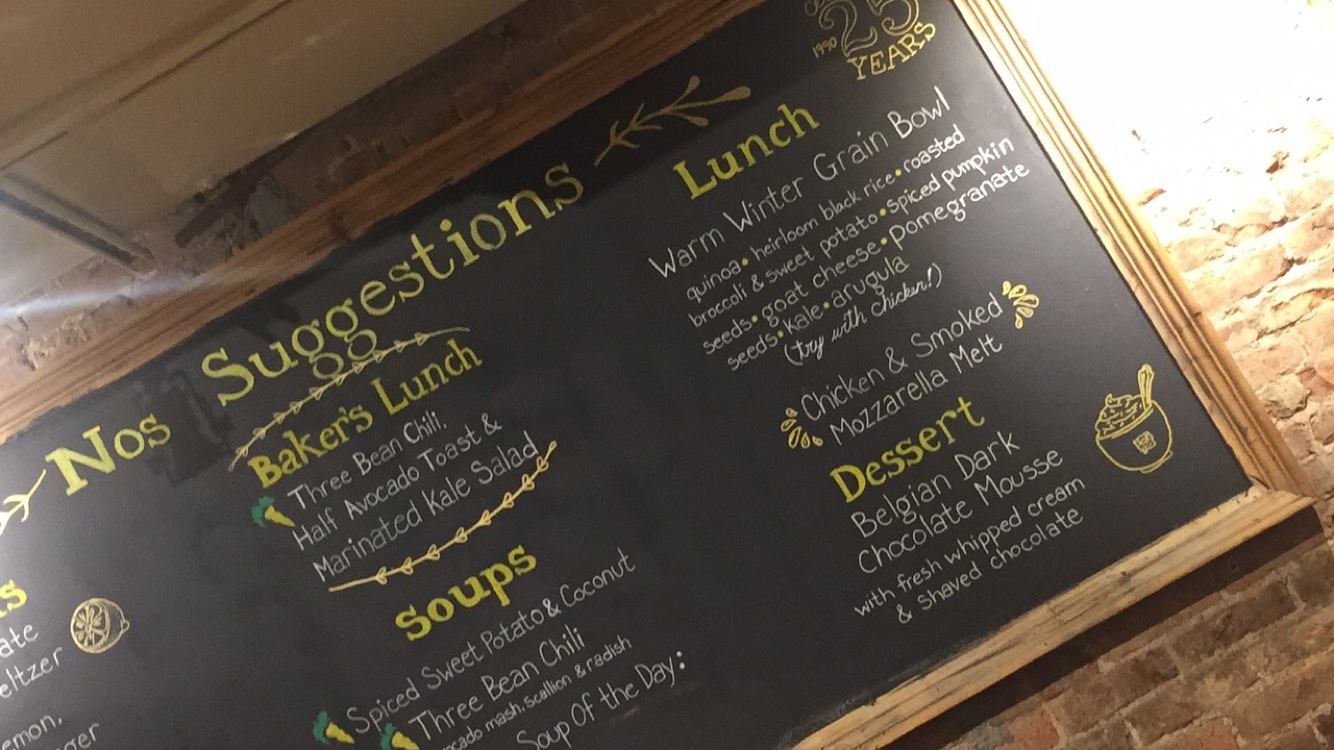 Nos Suggestions
Baker's Lunch
Three Bean Chili,
Half Avocado Toast &
Marinated Kale Salad
Soups
Spiced Sweet Potato & Coconut
Three Bean Chili
mash, scallion & radish
Soup Of the Day:
1990
25
YEARS
Lunch
Warm Winter Grain Bowl
quinoa • heirloom black rice • roasted
broccoli & sweet potato • spiced pumpkin
seeds • goat cheese • pomegranate
seeds • kale • arugula
(try with chicken!)
Chicken & Smoked
Mozzarella Melt
Dessert
Belgian Dark
Chocolate Mousse
with fresh whipped cream
& shaved chocolate